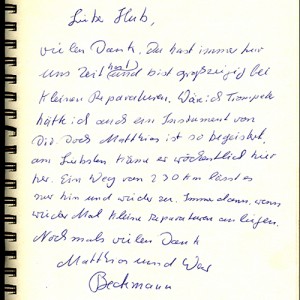 Liebe Hub,
vielen Dank. Du hast immer für
uns Zeit (und bist großzügig bei
kleinen Reparaturen. Wäre ich Trompete
hätte ich auch ein Instrument von
Dir. Doch Matthias ist so begeistert,
am liebsten käme er wöchentlich hier
her. Ein Weg von 230 km lässt es
nur hin und wieder zu. Immer dann, wenn
wieder Mal kleine Reparaturen anliegen.
Nochmals vielen Dank
Matthias und
Beckmann